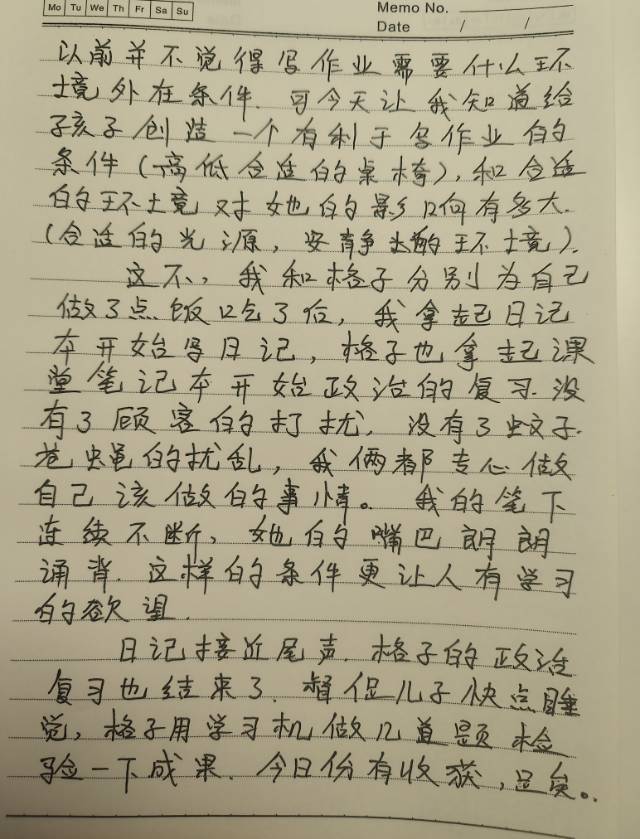 Mo Tu We Th Fr Sa Su
Memo No.
Date / /
以前并不觉得写作业需要什么环
境外在条件.可今天让我知道给
孩子创造一个有利于写作业的
条件(高低合适的桌椅),和合适
的环境对她的影响有多大.
(合适的光源,安静的环境).
这不,我和格子分别为自己
做了点饭吃了后,我拿起日记
本开始写日记,格子也拿起课
堂笔记本开始政治的复习.没
有了顾客的打扰,没有了蚊子.
苍蝇的扰乱,我俩都专心做
自己该做的事情。我的笔下
连续不断,她的嘴巴朗朗
诵背.这样的条件更让人有学习
的欲望.
日记接近尾声.格子的政治
复习也结来了.督促儿子快点睡
觉,格子用学习机做几道题检
验一下成果.今日份有收获,足矣。.